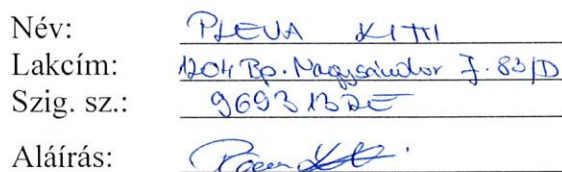 Név: PLEVA KITTI
Lakcím: 1204 Bp. Nagysándor J. 83/D
Szig. sz.: 969313DE
Aláírás: